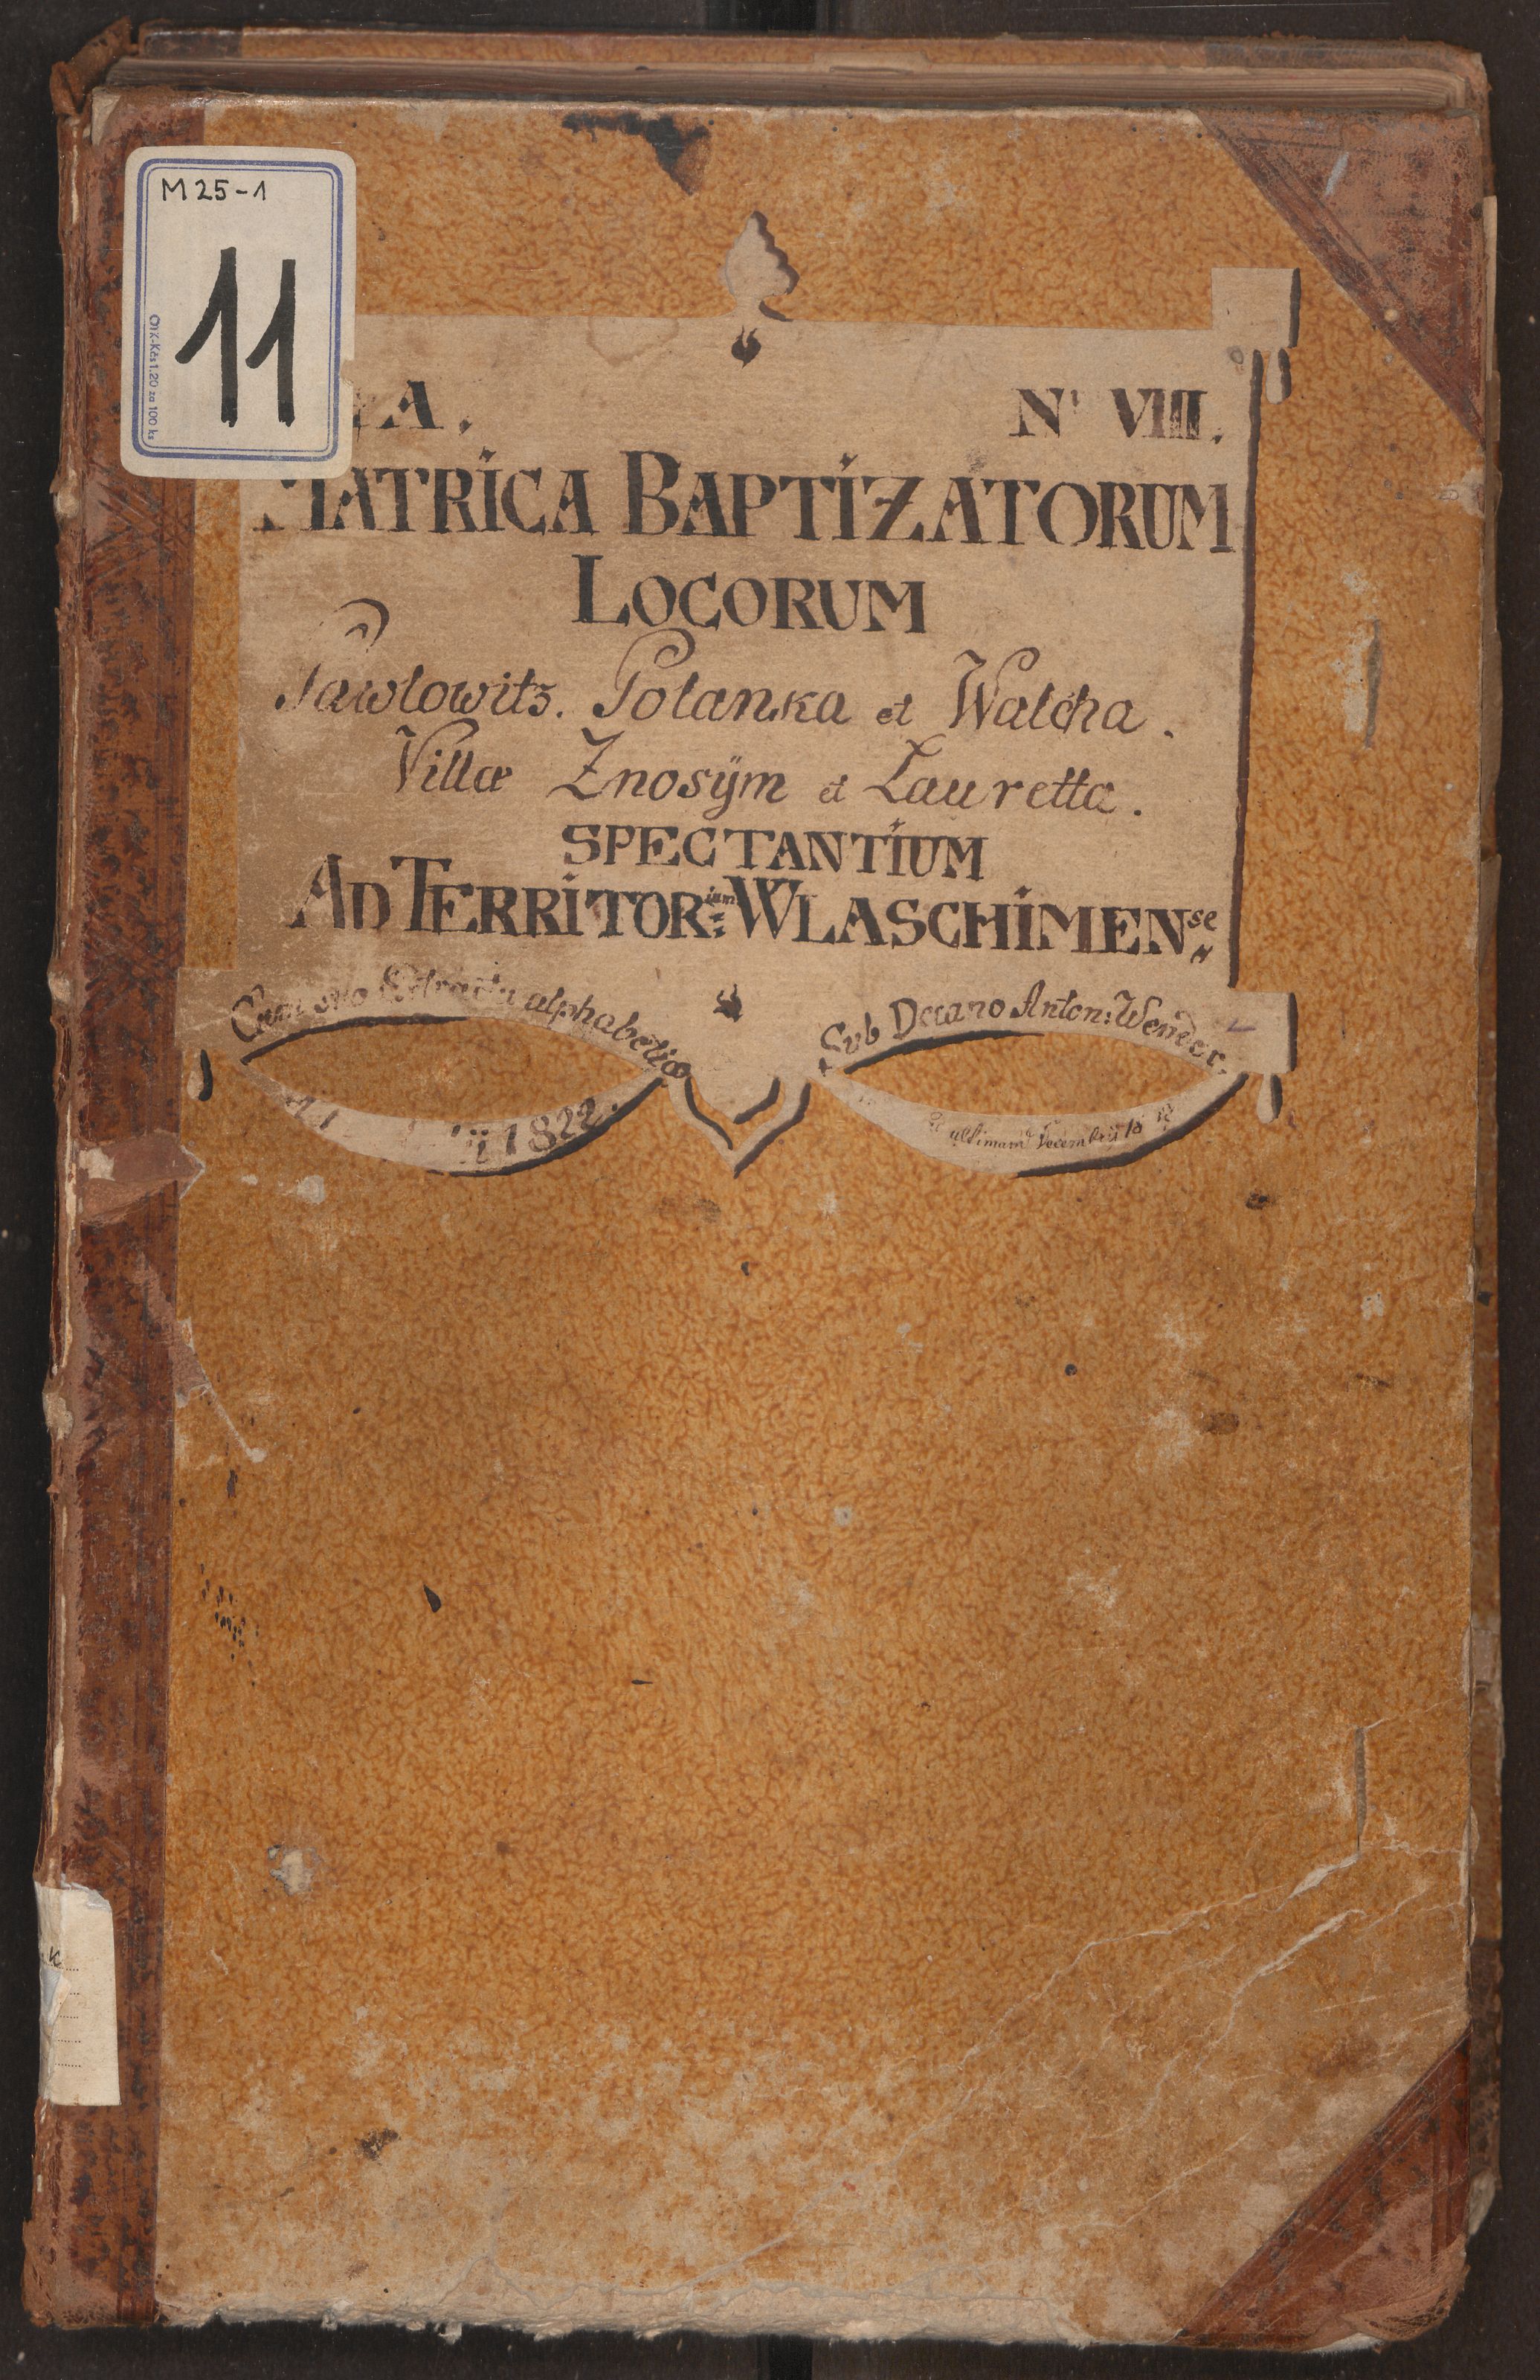 M 25-1
11
ČIIK-Kčs 1,20 za 100 ks
A. Nꞌ VIIII.
MATRICA BAPTIZATORUM
LOCORUM
Pawlowitz. Polanka et Walcha.
Villæ Znosÿm et Lauretta.
SPECTANTIUM
AD TERRITOR:ium WLASCHIMENse
Cum suo Extractu alphabetico
Sub Decano Anton: Wender.
1822.
ultimam Decembris 18
K